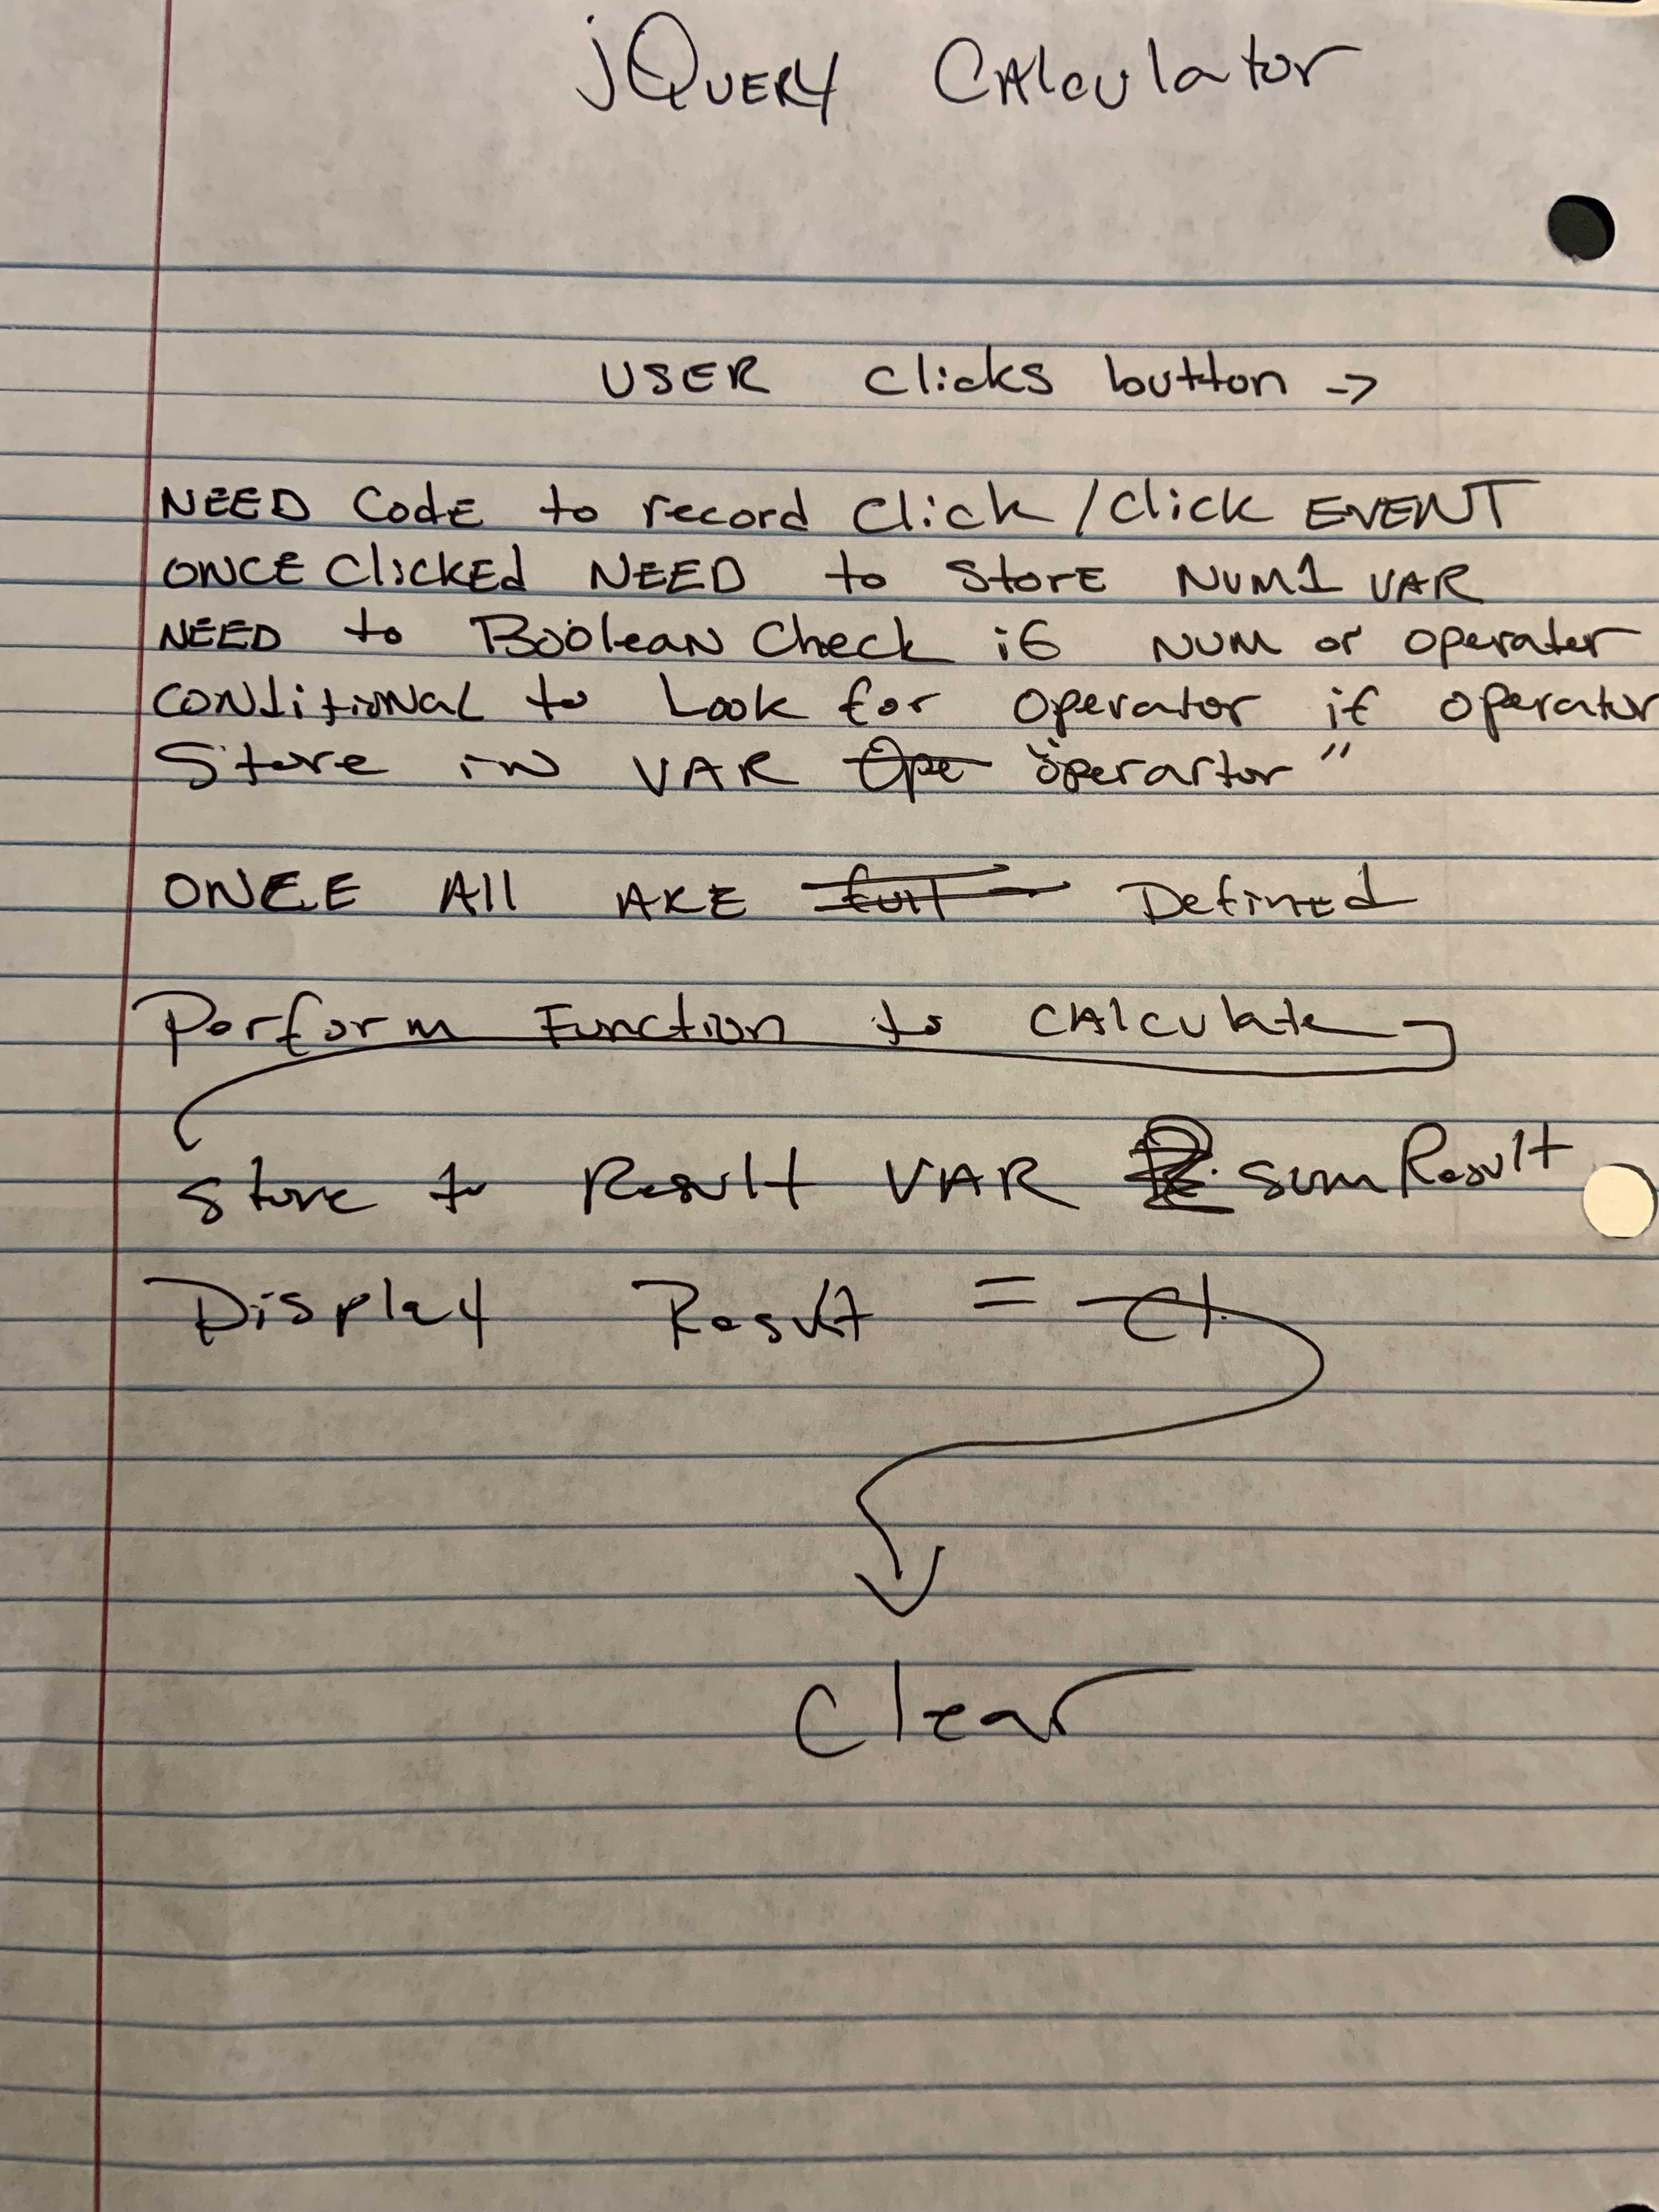 jQuery Calculator
USER clicks button ->
NEED Code to record Click / Click EVENT
ONCE Clicked NEED to Store NUM1 VAR
NEED to Boolean Check if NUM or operater
CONditioNAL to Look for operator if operator
Store in VAR Ope "operartor"
ONCE All ARE Defined
Perform Function to CAlculate
store to Result VAR sumResult
Display Result = Cl
Clear